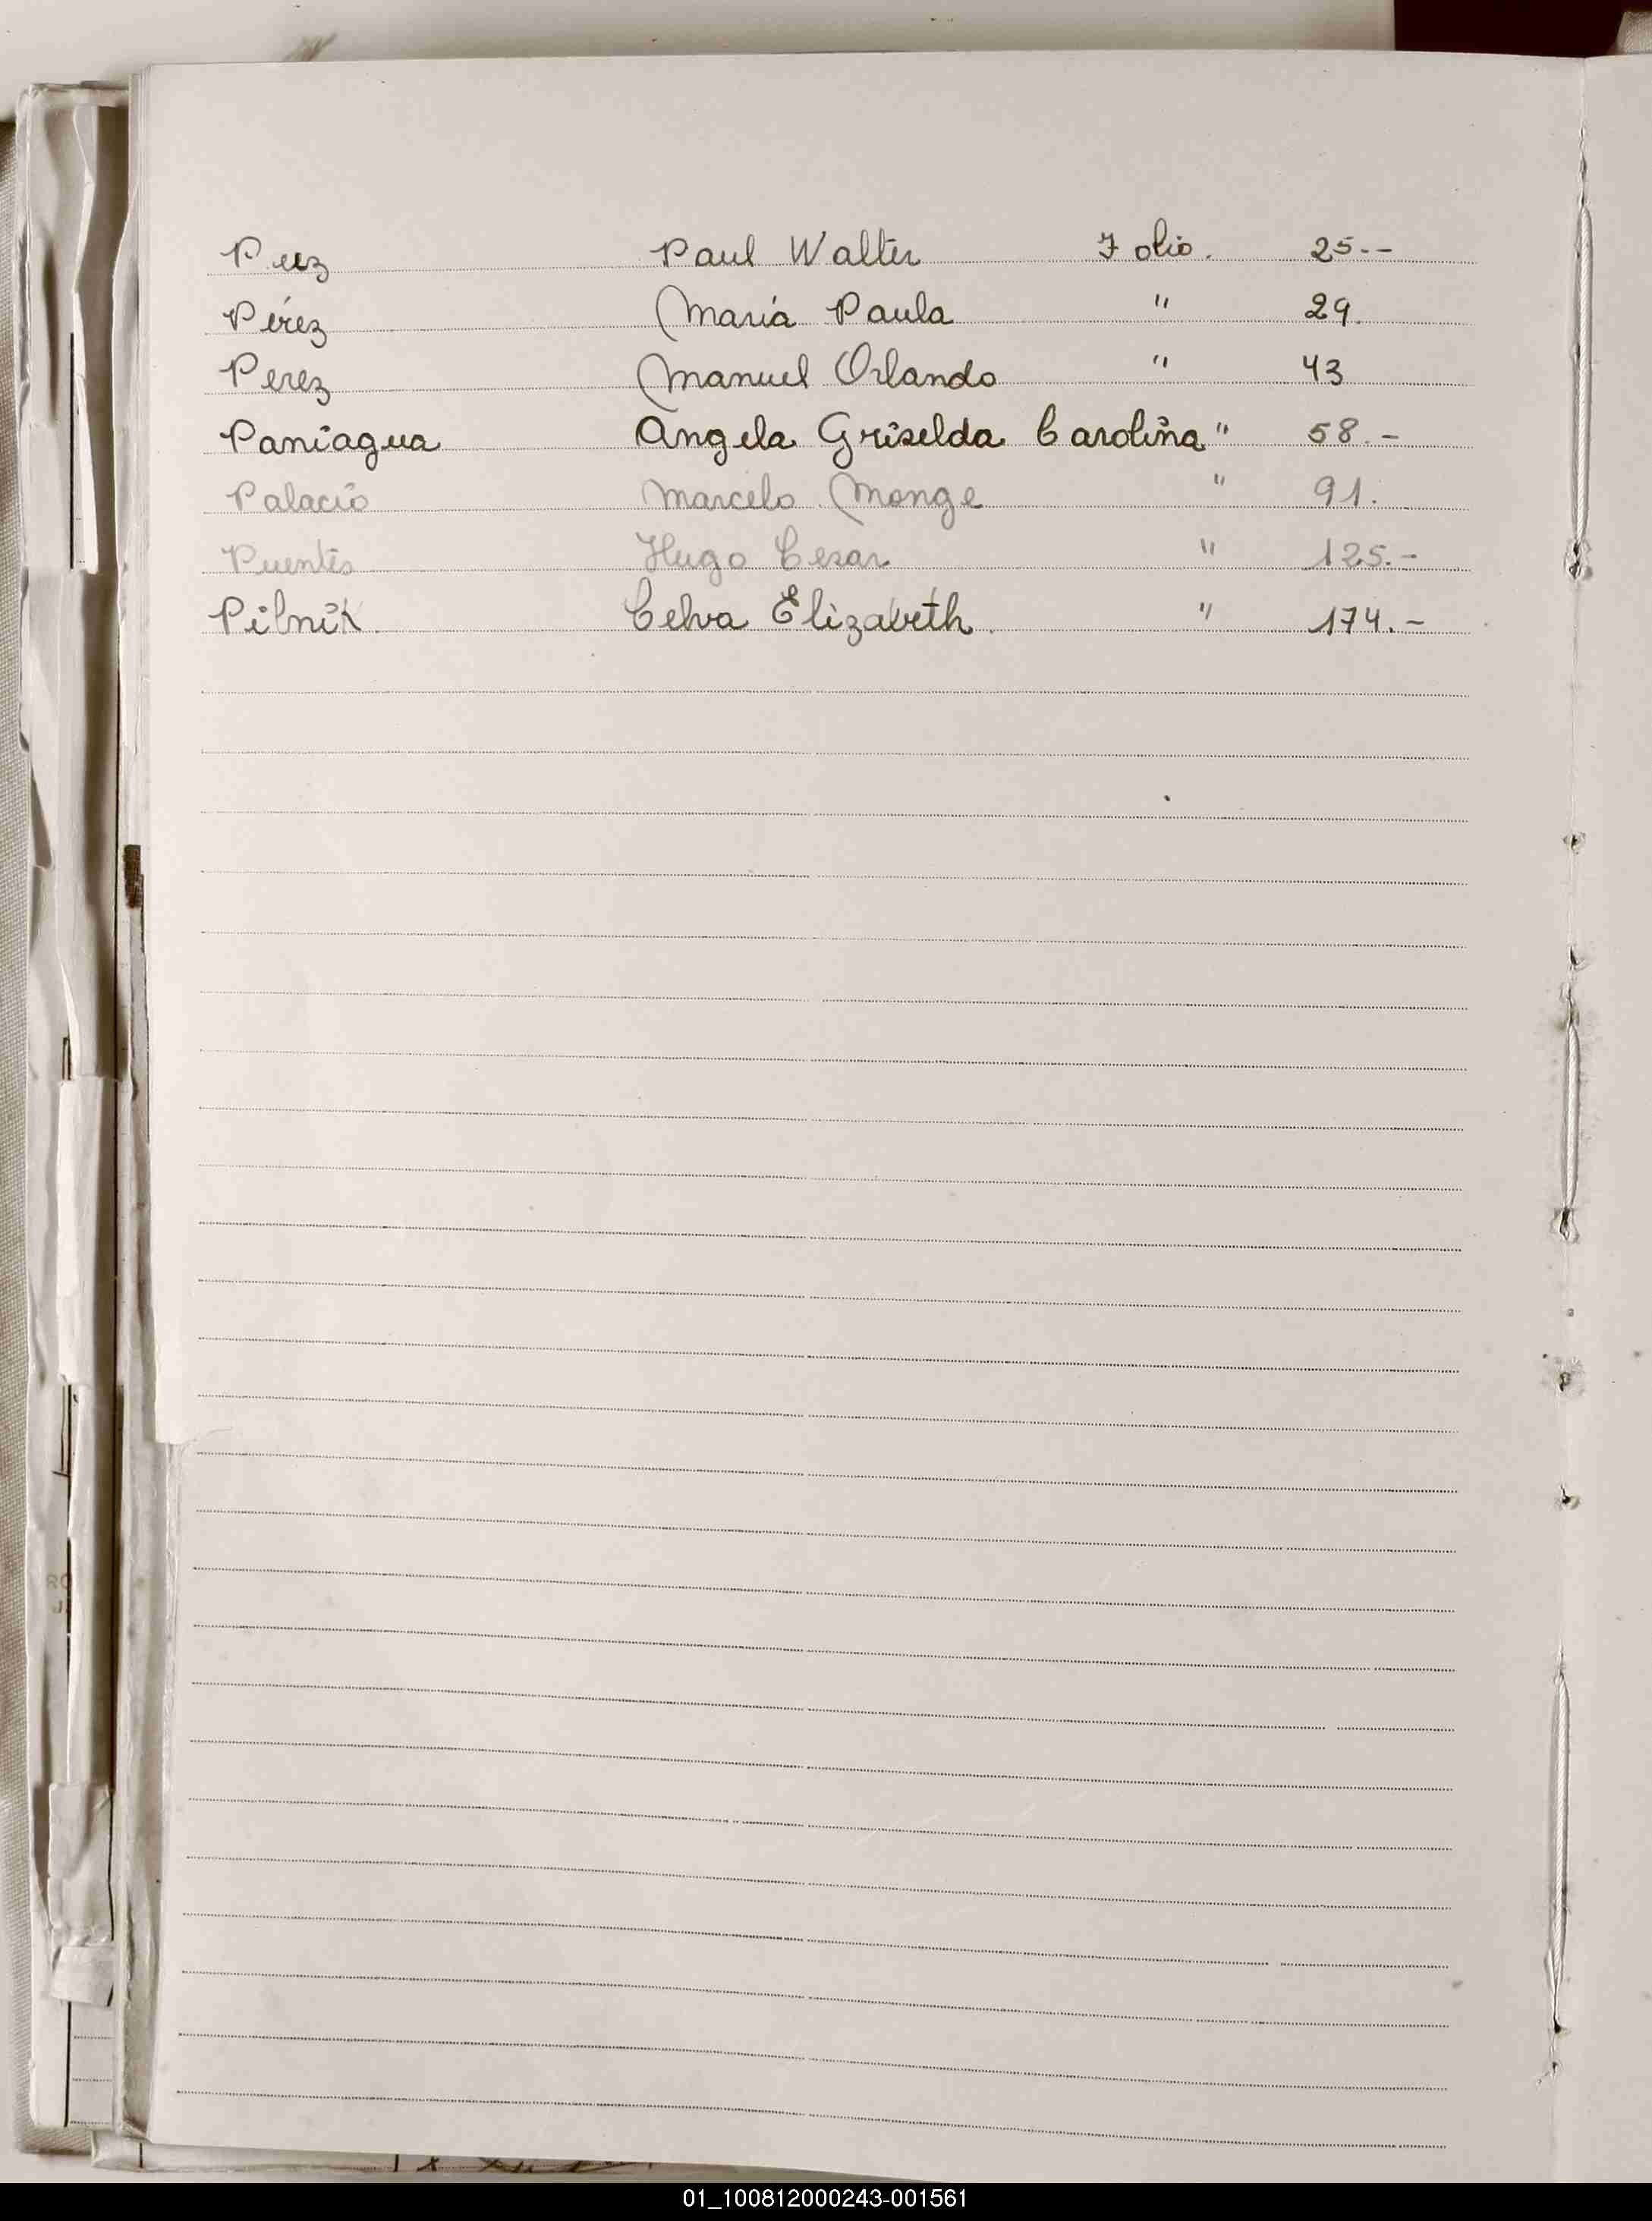 Perez Paul Walter Folio. 25.--
Pérez María Paula " 29.
Perez Manuel Orlando " 43
Paniagua Angela Griselda Carolina " 58.-
Palacio Marcelo Monge " 91.
Puentes Hugo Cesar " 125.-
Pilnik. Celva Elizabeth. " 174.-
01_100812000243-001561